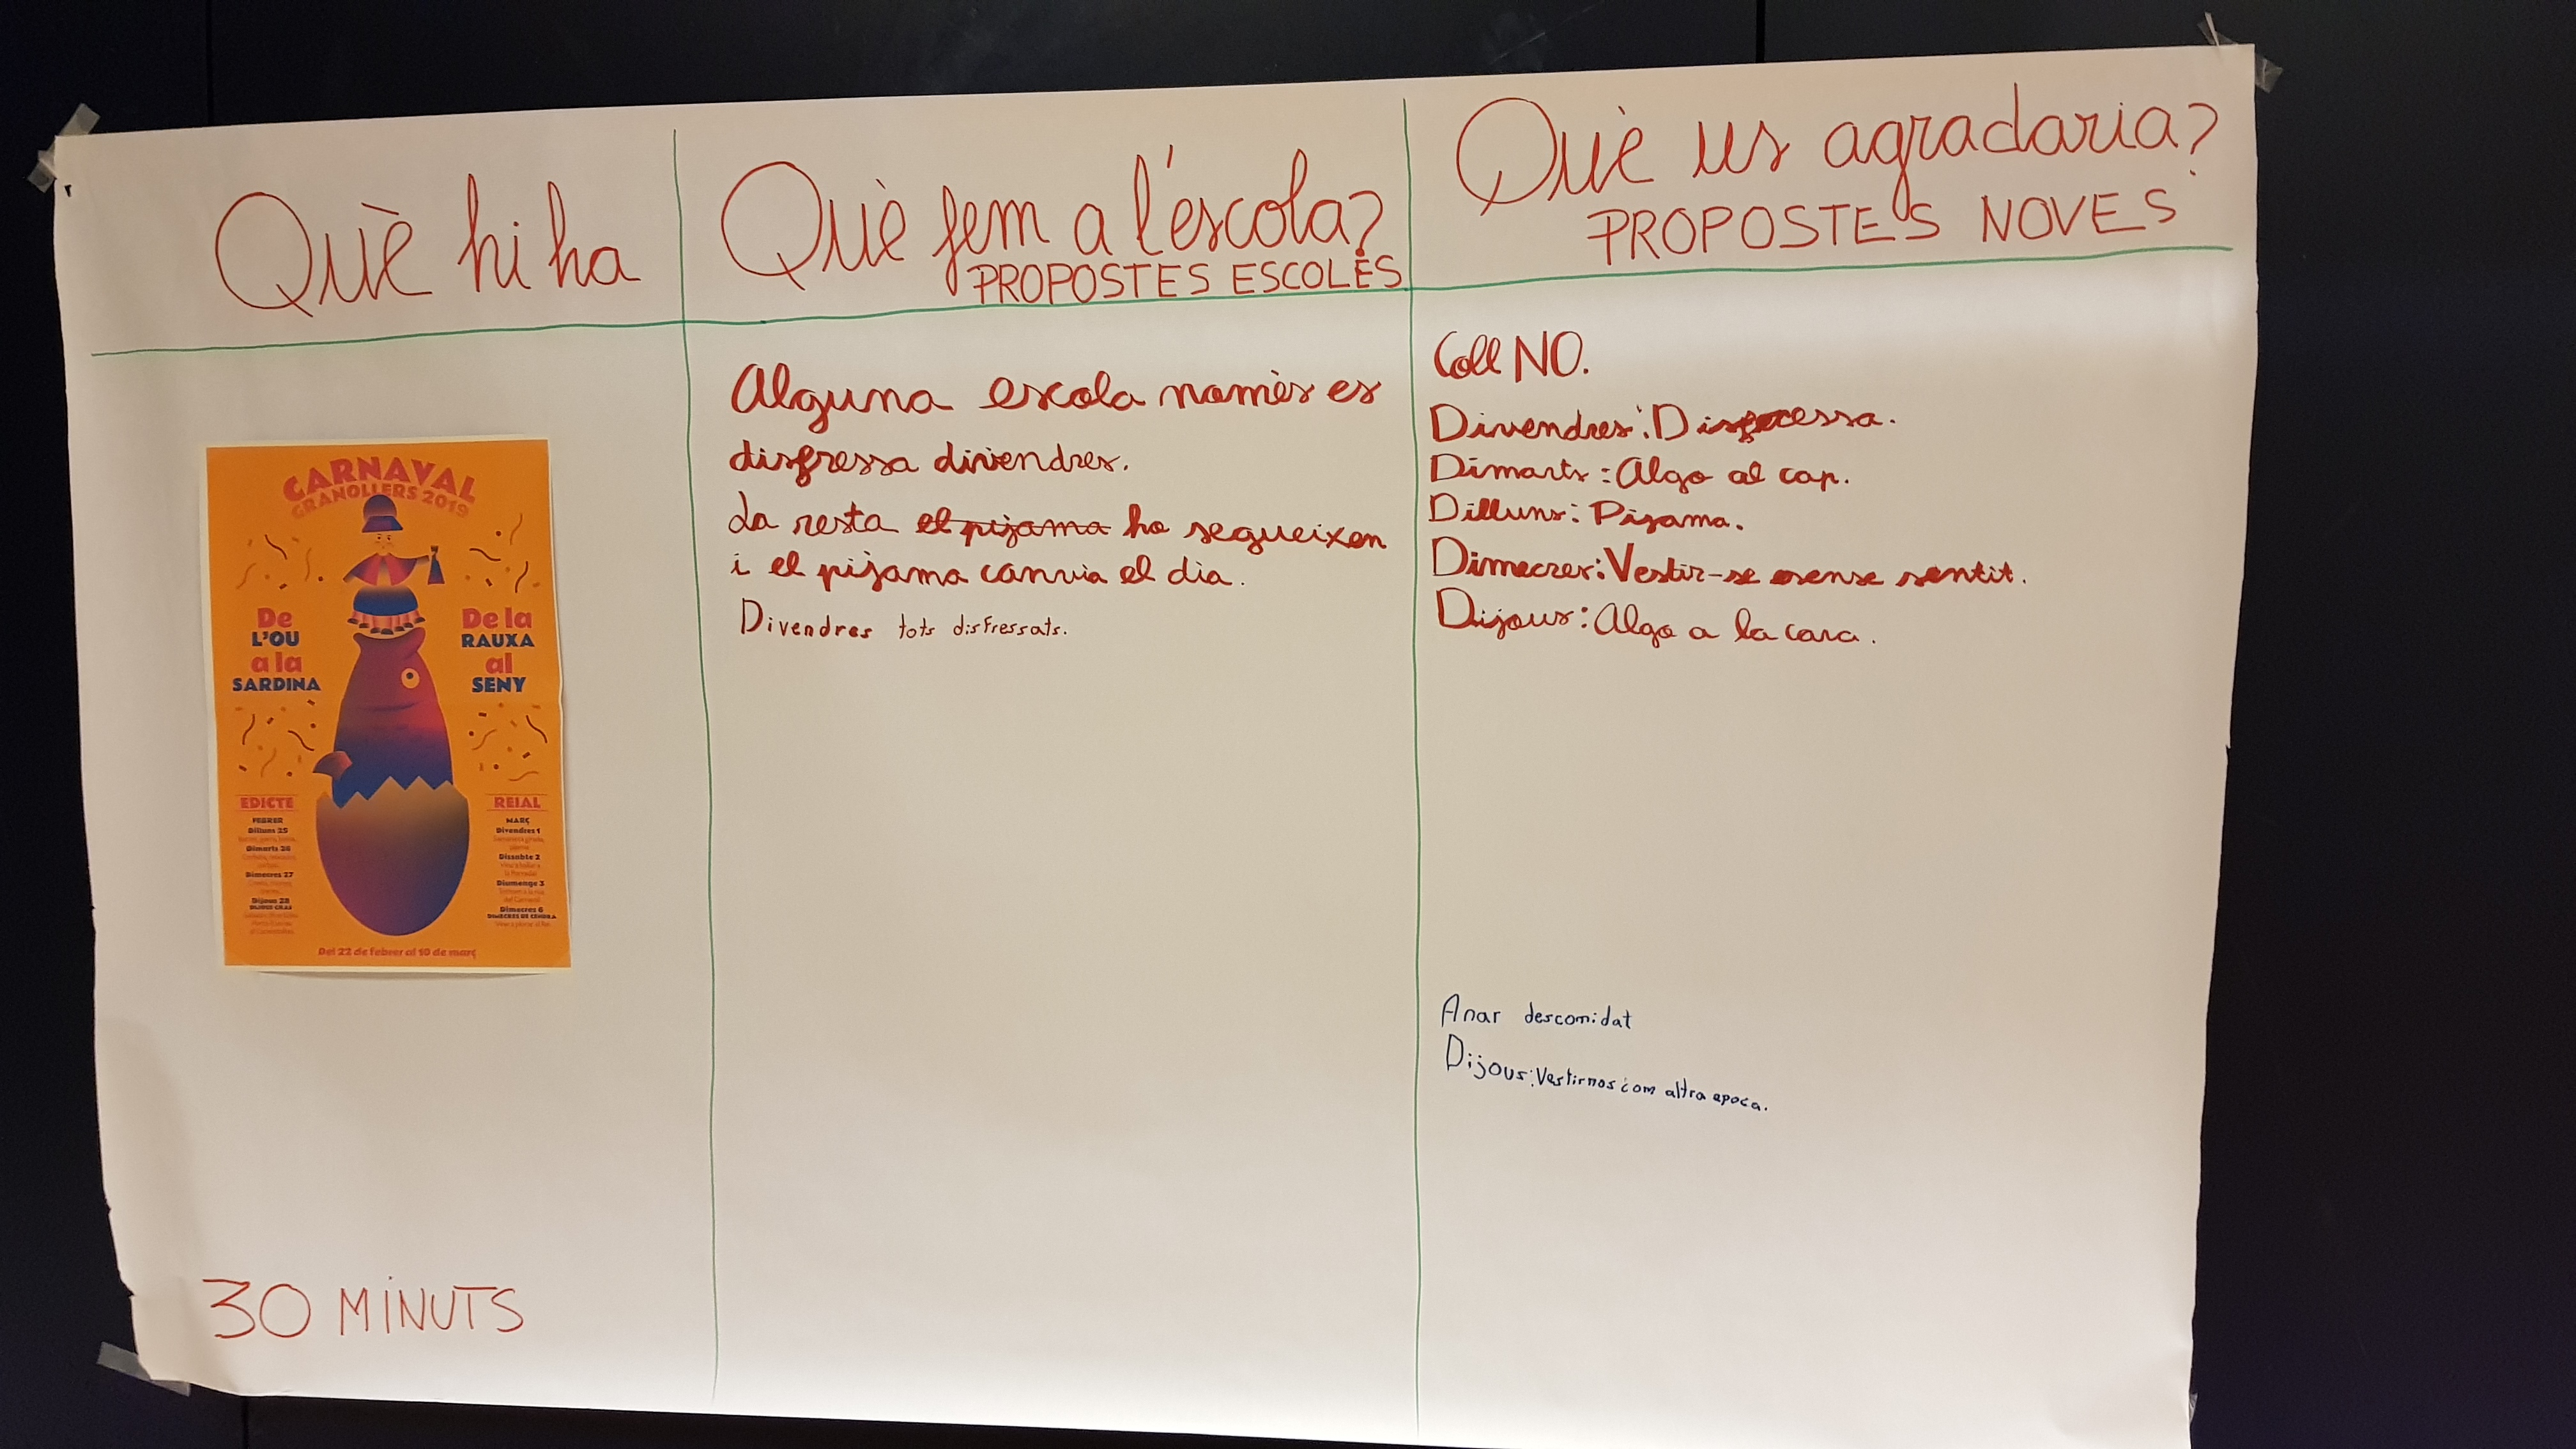 Què hi ha
CARNAVAL
GRANOLLERS 2019
De
L'OU
a la
SARDINA
De la
RAUXA
al
SENY
EDICTE
FEBRER
Dilluns 25
Dimarts 26
Dimecres 27
Dijous 28
DIJOUS GRAS
REIAL
MARÇ
Divendres 1
Dissabte 2
Diumenge 3
del Carnaval
Dimecres 6
DIMECRES DE CENDRA
Del 22 de febrer al 10 de març
30 MINUTS
Què fem a l'escola?
PROPOSTES ESCOLES
Alguna escola només es
disfressa divendres.
La resta el pijama ho segueixen
i el pijama canvia el dia.
Divendres tots disfressats.
Què us agradaria?
PROPOSTES NOVES
Coll NO.
Divendres: Disfressa.
Dimarts: Algo al cap.
Dilluns: Pijama.
Dimecres: Vestir-se sense sentit.
Dijous: Algo a la cara.
Anar descomidat
Dijous: Vestirnos com altra epoca.